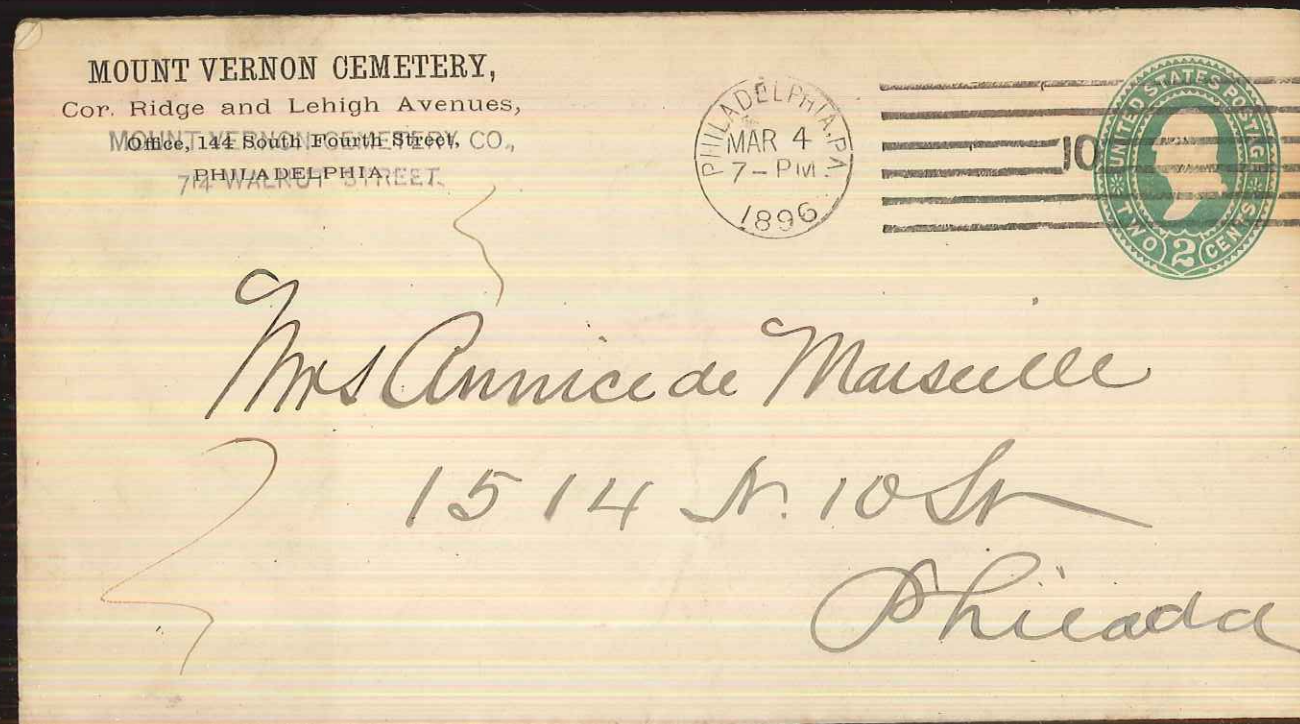 MOUNT VERNON CEMETERY,
Cor. Ridge and Lehigh Avenues,
Office, 144 South Fourth Street,
MOUNT VERNON CEMETERY CO.,
PHILADELPHIA.
714 WALNUT STREET.
PHILADELPHIA, PA.
MAR 4
7-PM.
1896
10
UNITED STATES POSTAGE
TWO 2 CENTS
Mrs Annice de Marseille
1514 N. 10 St
Philada